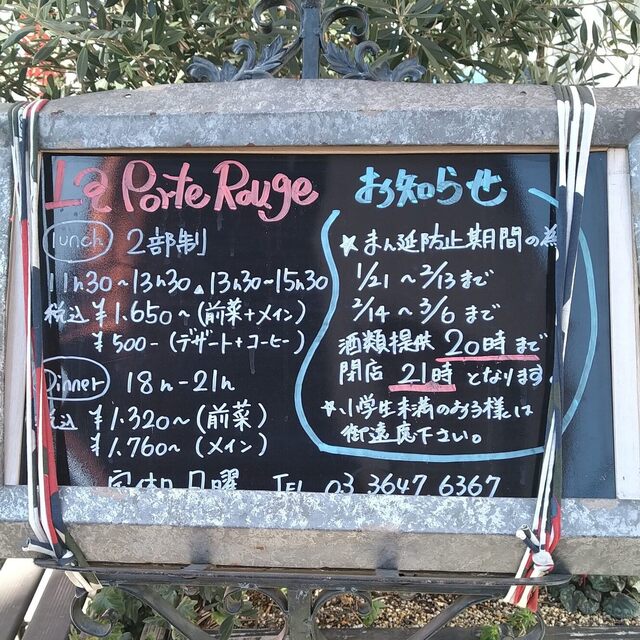 La Porte Rouge
lunch 2部制
11h30~13h30 13h30~15h30
税込 ¥1.650~(前菜+メイン)
¥500-(デザート+コーヒー)
Dinner 18h-21h
税込 ¥1.320~(前菜)
¥1.760~(メイン)
定休日 日曜 TEL 03 3647 6367
お知らせ
★まん延防止期間の為
1/21~2/13まで
2/14~3/6まで
酒類提供 20時まで
閉店 21時 となります。
☆小学生未満のお子様は
御遠慮下さい。